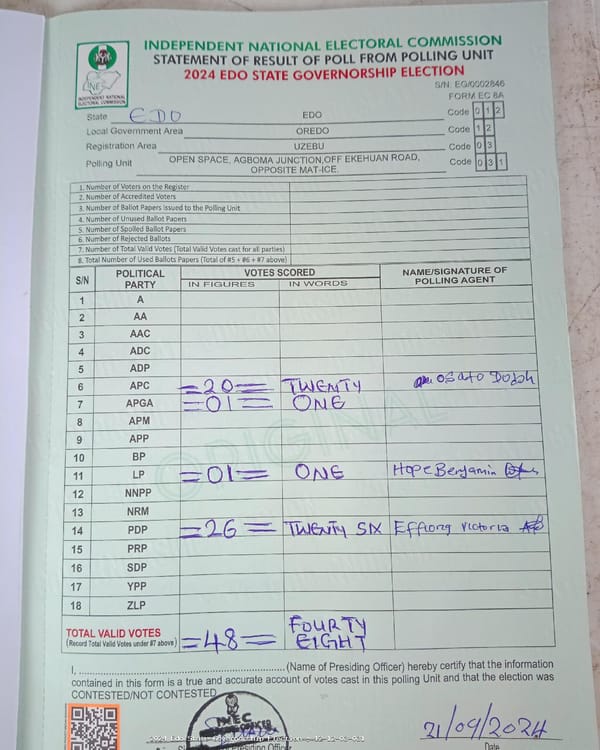 INDEPENDENT NATIONAL ELECTORAL COMMISSION
STATEMENT OF RESULT OF POLL FROM POLLING UNIT
2024 EDO STATE GOVERNORSHIP ELECTION
INEC
INDEPENDENT NATIONAL
ELECTORAL COMMISSION
S/N: EG/0002846
FORM EC 8A
State EDO EDO Code 0 1 2
Local Government Area OREDO Code 1 2
Registration Area UZEBU Code 0 3
Polling Unit OPEN SPACE, AGBOMA JUNCTION,OFF EKEHUAN ROAD, OPPOSITE MAT-ICE. Code 0 3 1
1. Number of Voters on the Register
2. Number of Accredited Voters
3. Number of Ballot Papers Issued to the Polling Unit
4. Number of Unused Ballot Papers
5. Number of Spoiled Ballot Papers
6. Number of Rejected Ballots
7. Number of Total Valid Votes (Total Valid Votes cast for all parties)
8. Total Number of Used Ballots Papers (Total of #5 + #6 + #7 above)
S/N POLITICAL PARTY VOTES SCORED NAME/SIGNATURE OF POLLING AGENT
IN FIGURES IN WORDS
1 A
2 AA
3 AAC
4 ADC
5 ADP
6 APC =20= TWENTY osato
7 APGA =01= ONE
8 APM
9 APP
10 BP
11 LP =01= ONE Hope Benjamin
12 NNPP
13 NRM
14 PDP =26= TWENTY SIX Effiong Victoria
15 PRP
16 SDP
17 YPP
18 ZLP
ORIGINAL
TOTAL VALID VOTES
(Record Total Valid Votes under #7 above) =48= FOURTY EIGHT
I, ........................................................(Name of Presiding Officer) hereby certify that the information
contained in this form is a true and accurate account of votes cast in this polling Unit and that the election was
CONTESTED/NOT CONTESTED
INEC
21/09/2024
Presiding Officer